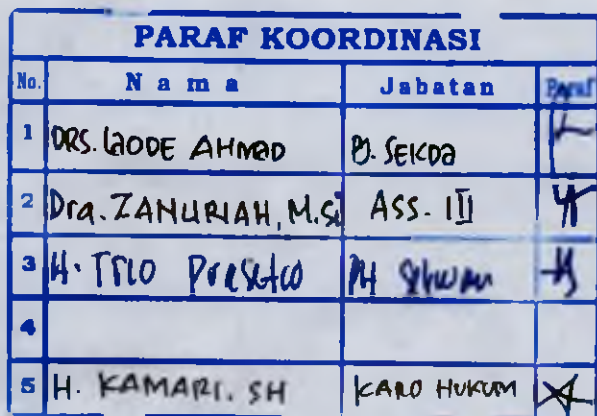 PARAF KOORDINASI
No. Nama Jabatan Paraf
1 DRS. LAODE AHMAD PJ. SEKDA
2 Dra. ZANURIAH, M.Si ASS. III
3 H. TRIO Prasetio PH
4
5 H. KAMARI. SH KARO HUKUM